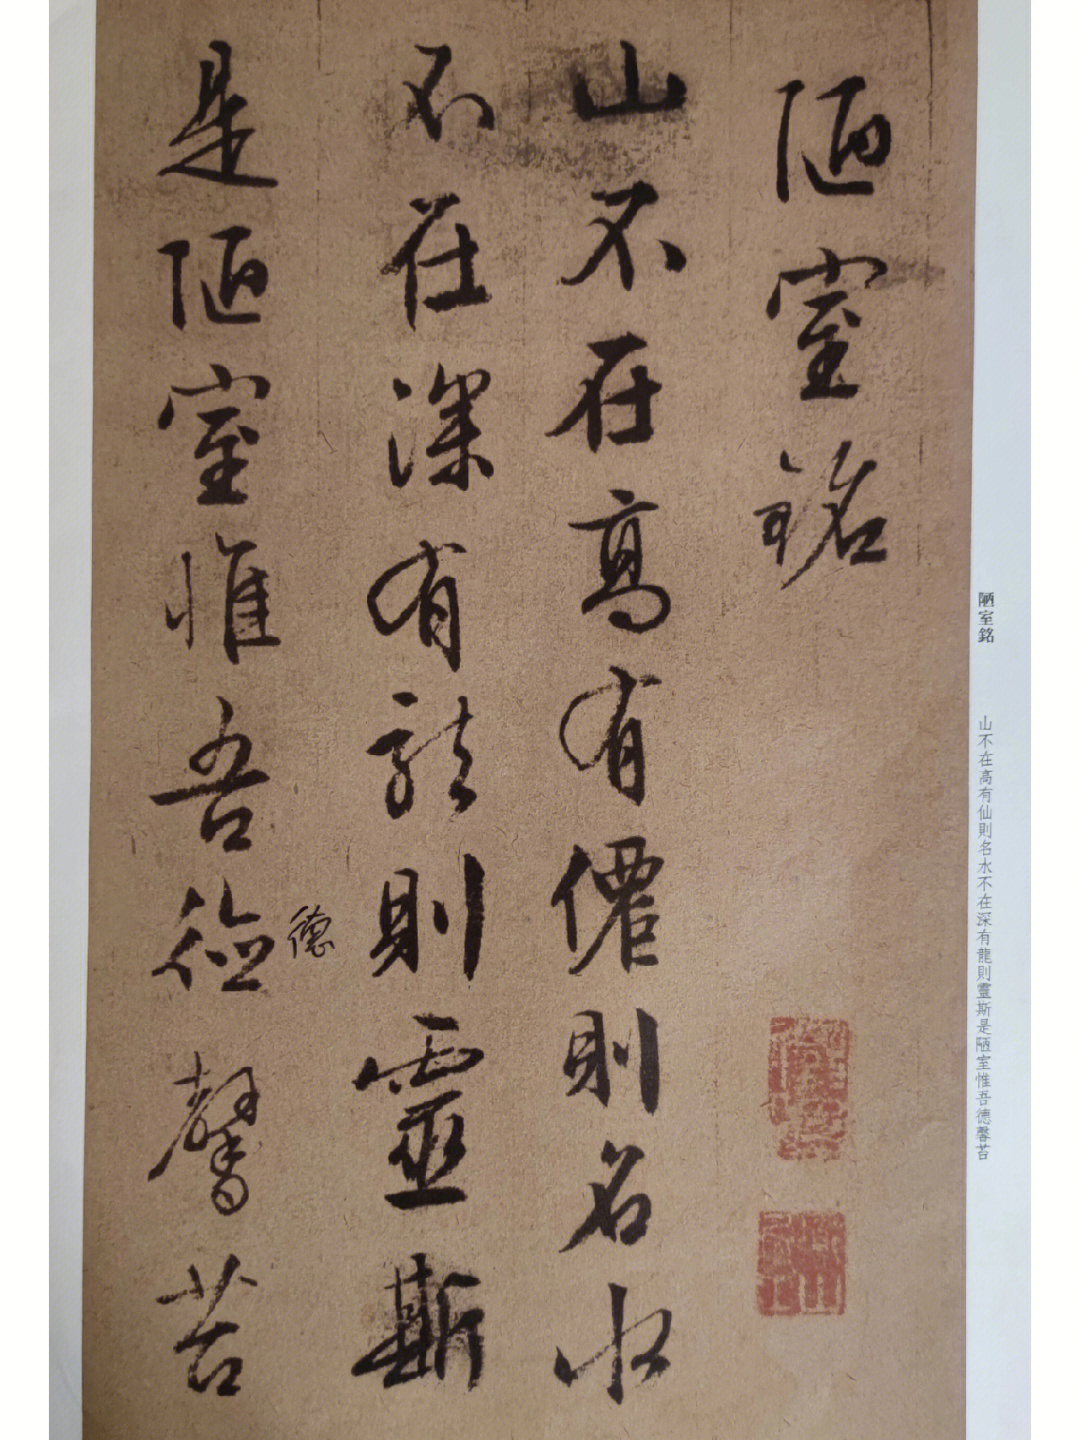 陋室銘
山不在高有僊則名水
不在深有龍則靈斯
是陋室惟吾德馨苔
德
陋室銘　山不在高有仙則名水不在深有龍則靈斯是陋室惟吾德馨苔